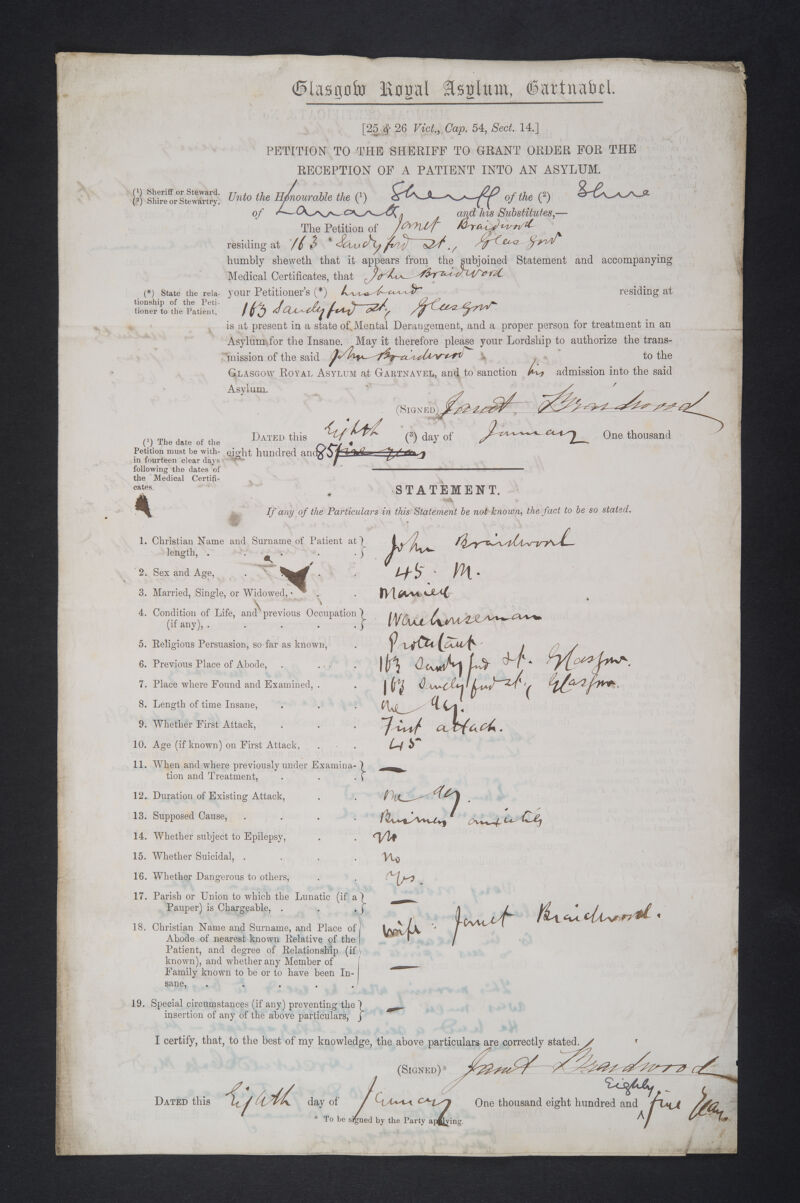 Glasgow Royal Asylum, Gartnavel.
[25 & 26 Vict., Cap. 54, Sect. 14.]
PETITION TO THE SHERIFF TO GRANT ORDER FOR THE
RECEPTION OF A PATIENT INTO AN ASYLUM.
(¹) Sheriff or Steward.
(²) Shire or Stewartry.
Unto the Honourable the (¹) Sheriff of the (²) Shire
of Lanark and his Substitutes,—
The Petition of Janet Braidwood
residing at 163 Sandyford St., Glasgow
humbly sheweth that it appears from the subjoined Statement and accompanying
Medical Certificates, that John Braidwood
(*) State the rela-
tionship of the Peti-
tioner to the Patient.
your Petitioner's (*) husband residing at
163 Sandyford St, Glasgow
is at present in a state of Mental Derangement, and a proper person for treatment in an
Asylum for the Insane. May it therefore please your Lordship to authorize the trans-
mission of the said John Braidwood to the
GLASGOW ROYAL ASYLUM at GARTNAVEL, and to sanction his admission into the said
Asylum.
(SIGNED) Janet Braidwood
(³) The date of the
Petition must be with-
in fourteen clear days
following the dates of
the Medical Certifi-
cates.
DATED this Eighth (³) day of January One thousand
eight hundred and 85 five years
STATEMENT.
If any of the Particulars in this Statement be not known, the fact to be so stated.
1. Christian Name and Surname of Patient at length, . John Braidwood
2. Sex and Age, 45. M.
3. Married, Single, or Widowed, Married
4. Condition of Life, and previous Occupation (if any), . Warehouseman
5. Religious Persuasion, so far as known, Protestant
6. Previous Place of Abode, 163 Sandyford St. Glasgow.
7. Place where Found and Examined, 163 Sandyford St, Glasgow.
8. Length of time Insane, One day.
9. Whether First Attack, First attack.
10. Age (if known) on First Attack, 45
11. When and where previously under Examina-
tion and Treatment, —
12. Duration of Existing Attack, One day.
13. Supposed Cause, Business anxieties
14. Whether subject to Epilepsy, No
15. Whether Suicidal, No
16. Whether Dangerous to others, Yes.
17. Parish or Union to which the Lunatic (if a
Pauper) is Chargeable, —
18. Christian Name and Surname, and Place of
Abode of nearest known Relative of the
Patient, and degree of Relationship (if
known), and whether any Member of
Family known to be or to have been In-
sane, wife. Janet Braidwood.
—
19. Special circumstances (if any) preventing the
insertion of any of the above particulars, —
I certify, that, to the best of my knowledge, the above particulars are correctly stated.
(SIGNED)* Janet Braidwood
DATED this Eighth day of January One thousand eight hundred and Eighty five Years
* To be signed by the Party applying.